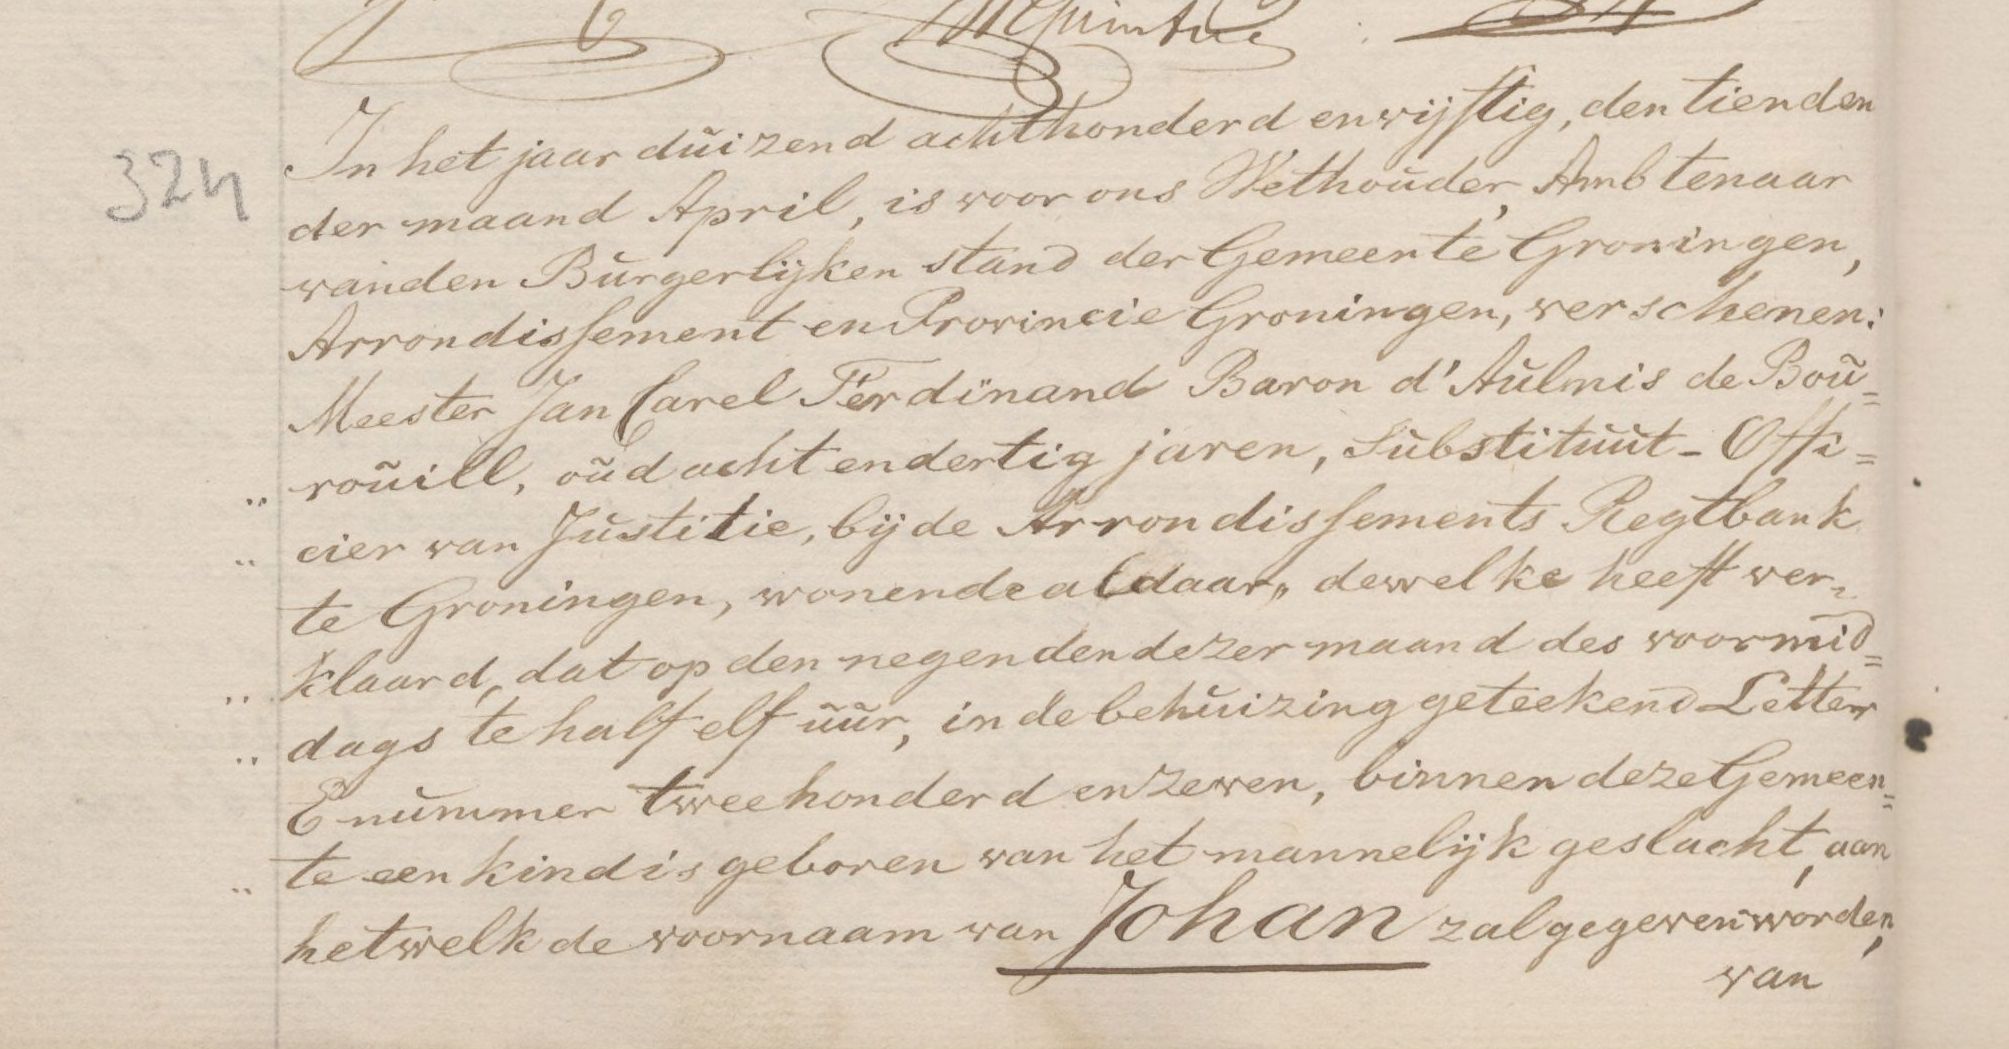 324
In het jaar duizend achthonderd en vijftig, den tienden
der maand April, is voor ons Wethouder, Ambtenaar
van den Burgerlijken stand der Gemeente Groningen,
Arrondissement en Provincie Groningen, verschenen:
Meester Jan Carel Ferdinand Baron d'Aulnis de Bou=
„ rouill, oud acht en dertig jaren, Substituut-Offi=
„ cier van Justitie, bij de Arrondissements Regtbank
te Groningen, wonende aldaar, dewelke heeft ver=
„ klaard, dat op den negenden dezer maand des voormid=
„ dags te half elf uur, in de behuizing geteekend Letter
E nummer twee honderd en zeven, binnen deze Gemeen=
„ te een kind is geboren van het mannelijk geslacht, aan
hetwelk de voornaam van Johan zal gegeven worden,
van